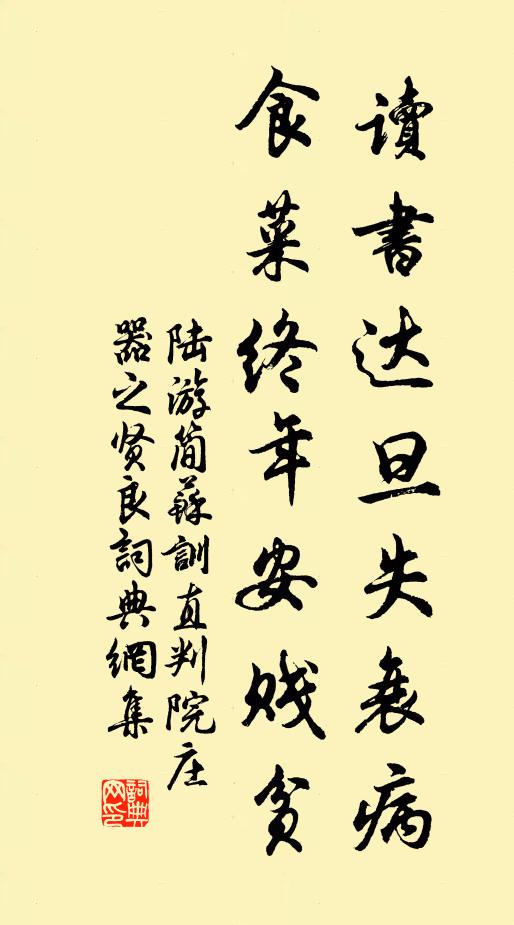 读書达旦失衰病
食菜终年安贱贫
陆游简蘇訓直判院庄
器之贤良詞典網集
詞典网印